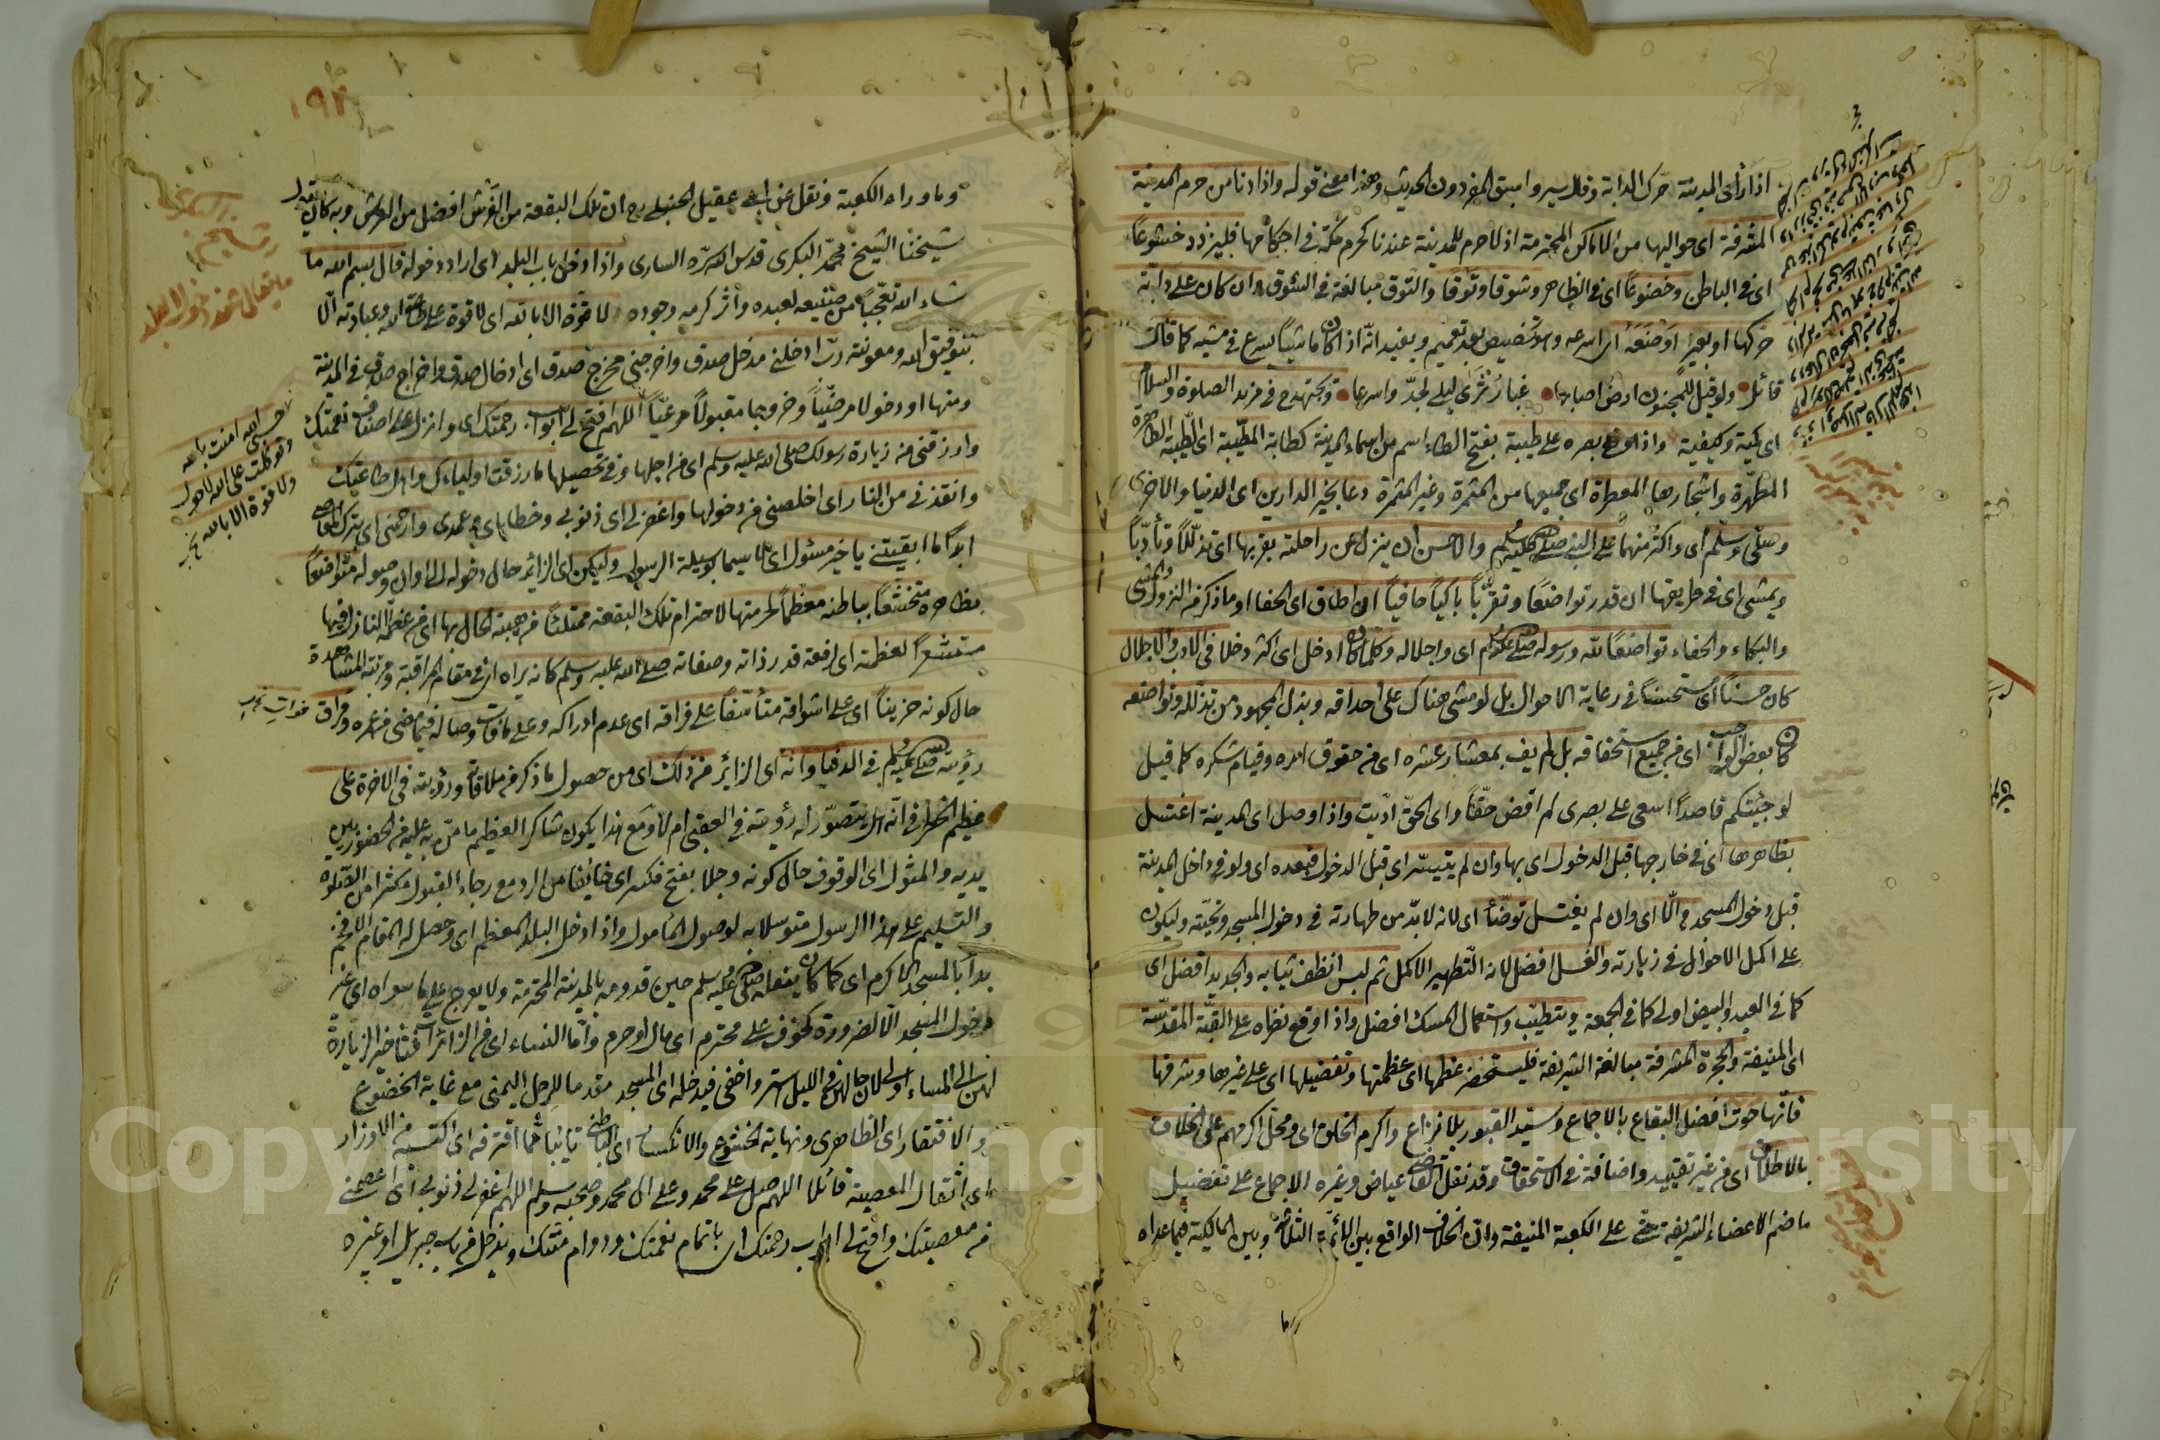 اذا رأى المدينة حرّك الدابة وقال سيروا سبق المفردون الحديث وهذا معنى قوله واذا دنا من حرم المدينة
المشرّفة اى حواليها من الاماكن المحترمة اذ لا حرم للمدينة عندنا كحرم مكة في احكامها فليزدد خشوعاً
اى في الباطن وخضوعاً اى في الظاهر وشوقا وتوقا والتوق مبالغة في الشوق وان كان على دابّة
حرّكها او بعير اوضعه اى اسرعه وهو تخصيص بعد تعميم ويفيد انّه اذا كان ماشياً يسرع في مشيه كما قال
قائل ولو قيل للمجنون ارض اصابها غبار ثرى ليلى لجدّ واسرعا ويجتهد ح في مزيد الصلوة والسلام
اى كمية وكيفية واذا وقع بصره على طيبة بفتح الطاء اسم من اسماء المدينة كطابة المطيّبة اى الطيّبة الطاهرة
المطهّرة واشجارها المعطرة اى جميعها من المثمرة وغير المثمرة دعا بخير الدارين اى الدنيا والاخرى
وصلّى وسلّم اى واكثر منهما على النبي صلى الله عليه وسلم والاحسن ان ينزل عن راحلته بقربها اى تذلّلا وتأدّبا
ويمشى اى في طريقها ان قدر تواضعًا وتقرّباً باكياً حافياً ان اطاق اى الحفا او ما ذكر من النزول والمشى
والبكاء والحفاء تواضعًا لله ورسوله صلى الله عليه وسلم اى واجلاله وكلما كان ادخل اى اكثر دخلا في الادب والاجلال
كان حسناً اى مستحسناً في رعاية الاحوال بل لو مشى هناك على احداقه وبذل المجهود من تذلّله وتواضعه
كان بعض الواجب اى من جميع استحقاقه بل لم يف بمعشار عشره اى من حقوق امره وقيام شكره كما قيل
لو جئتكم قاصداً اسعى على بصرى لم اقض حقّاً واى الحقّ ادّيت واذا وصل اى المدينة اغتسل
بظاهرها اى في خارجها قبل الدخول اى بها وان لم يتيسّر اى قبل الدخول فبعده اى ولو في داخل المدينة
قبل دخول المسجد والّا اى وان لم يغتسل توضّأ اى لانه لابدّ من طهارته في دخول المسجد وتحيّته وليكون
على اكمل الاحوال في زيارته والغسل افضل لانه التّطهير الاكمل ثم لبس انظف ثيابه والجديد افضل اى
كما في العيد والبيض اولى كما في الجمعة ويتطيّب واستعمال المسك افضل واذا وقع نظره على القبّة المقدّسة
اى المنيفة والحجرة المشرفة مبالغة الشريفة فليستحضر عظمها اى عظمتها وتفضيلها اى على غيرها وشرفها
فانّها حوت افضل البقاع بالاجماع وسيّد القبور بلا نزاع واكرم الخلق اى ومحلّ اكرمهم على الخلاق
بالاطلاق اى من غير تقييد واضافة في الاستحقاق وقد نقل القاضى عياض وغيره الاجماع على تفضيل
ما ضم الاعضاء الشريفة حتّى على الكعبة المنيفة وانّ الخلاف الواقع بين الائمّة الثلاثة وبين المالكية فيما عداه
١٩٢
وما وراء الكعبة ونقل عن ابى عقيل الحنبلى رح ان تلك البقعة من الفرش افضل من العرش وبه كان يقول
شيخنا الشيخ محمّد البكرى قدس الله سرّه السارى واذا دخل باب البلد اى اراد دخوله قال بسم الله ما
شاء الله تعجّباً من صنيعه لعبده واثر كرمه وجوده لا قوة الا بالله اى لا قوة على طاعة الله وعبادته الّا
بتوفيق الله ومعونته ربّ ادخلنى مدخل صدق واخرجنى مخرج صدق اى ادخال صدق واخراج صدق في المدينة
ومنها او دخولا مرضيّاً وخروجا مقبولاً مرعيّاً اللهم افتح لى ابواب رحمتك اى وانزل على اصناف نعمتك
وارزقنى من زيارة رسولك صلى الله عليه وسلم اى من اجلها وفي تحصيلها ما رزقت اولياءك واهل طاعتك
وانقذنى من النار اى اخلصنى من دخولها واغفر لى اى ذنوبى وخطاياى وعمدى وارحمنى اى بترك المعاصى
ابداً ما ابقيتنى يا خير مسئول اى لا سيما بوسيلة الرسول وليكن اى الزائر حال دخوله الى اوان وصوله متواضعًا
بظاهره متخشّعاً بباطنه معظماً لحرمتها لاحترام تلك البقعة ممتلئاً من هيبته الحال بها اى من عظمة النازل فيها
مستشعراً لعظمته اى رفعة قدر ذاته وصفاته صلى الله عليه وسلم كانه يراه اى في مقام المراقبة ومرتبة المشاهدة
حال كونه حزيناً اى على اشواقه متأسّفاً على فراقه اى عدم ادراكه وعلى مافات وصاله فيما مضى من عمره وفراق
رؤيته صلى الله عليه وسلم في الدنيا وانه اى الزائر من ذلك اى من حصول ما ذكر من ملاقاته ورؤيته في الاخرة على
عظيم الخطر في انّه هل يتصوّر له رؤيته في العقبى ام لا ومع هذا يكون شاكر العظيم ما منّ به عليه من الحضور بين
يديه والمثول اى الوقوف حال كونه وجلا بفتح فكسر اى خائفا من الرد مع رجاء القبول مكثرا من الصلوة
والتسليم على هذا الرسول متوسلا به لوصول المامول واذا دخل البلد المعظم اى وحصل له المقام الافخم
بدأ بالمسجد الاكرم اى كما كان يفعله صلى الله عليه وسلم حين قدومه بالمدينة المحترمة ولا يعرج على ما سواه اى غير
دخول المسجد الّا لضرورة كخوف على محترم اى مال او حرم وامّا النساء اى من الزائرات فتأخير الزيارة
لهن الى المساء اولى لان حالهن في الليل استر واخفى فيدخله اى المسجد مقدما للرجل اليمنى مع غاية الخضوع
والافتقار اى الظاهرى ونهاية الخشوع والانكسار اى الباطنى تائبا عمّا اقترفه اى اكتسبه من الاوزار
اى اثقال المعصية قائلا اللهم صل على محمد وعلى ال محمد وصحبه وسلم اللهم اغفر لى ذنوبى اى اعصمنى
من معصيتك وافتح لى ابواب رحمتك اى باتمام نعمتك ودوام منّتك ويدخل من باب جبريل او غيره
حسبى الله امنت بالله
وتوكلت على الله لا حول
ولا قوة الا بالله
Copyright © King Saud University